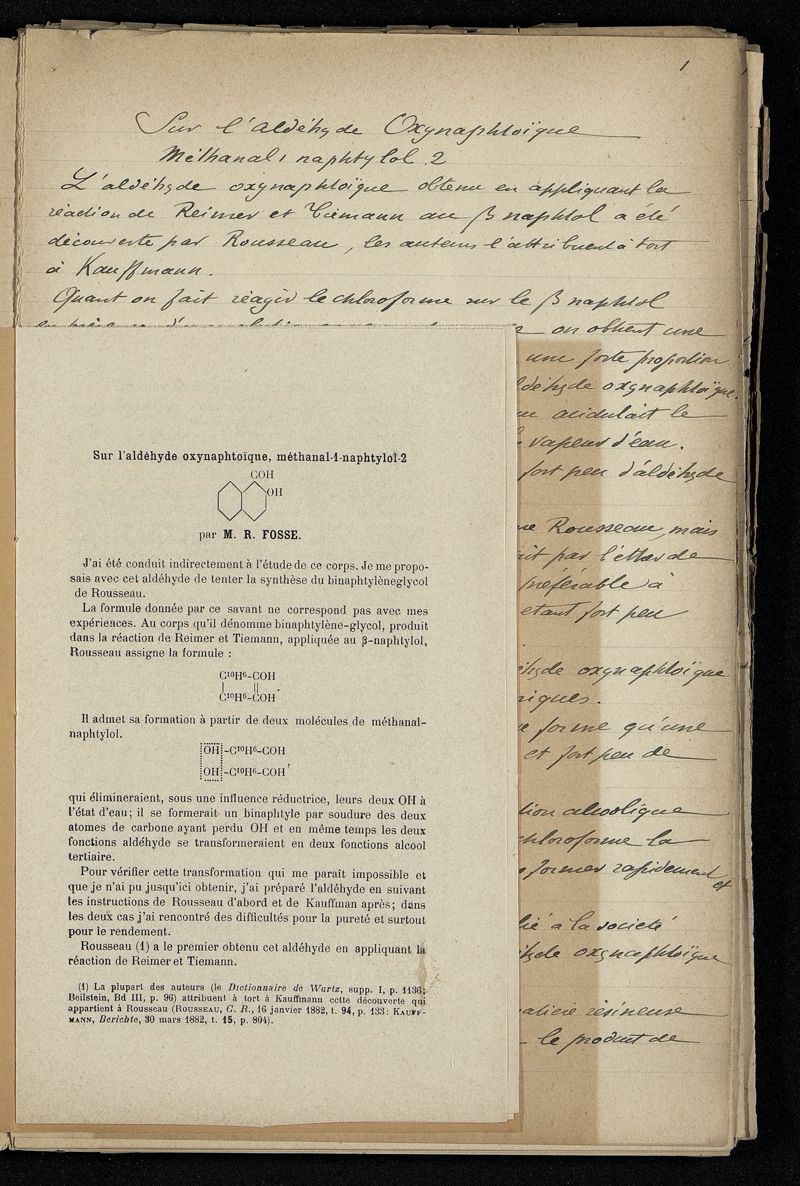 1
Sur l'aldéhyde Oxynaphtoïque
Méthanal 1 naphtylol 2
L'aldéhyde oxynaphtoïque obtenu en appliquant la
réaction de Reimer et Tiemann au β naphtol a été
découverte par Rousseau, les auteurs l'attribuent à tort
à Kauffmann.
Quant on fait réagir le chloroforme sur le β naphtol
on obtient une
une forte proportion
aldéhyde oxynaphtoïque.
acidulait le
vapeur d'eau.
fort peu d'aldéhyde
Rousseau, mais
par l'éther de
préférable à
etant fort peu
oxynaphtoïque
forme qu'une
et fort peu de
alcoolique
chloroforme la
former rapidement
et
à la société
oxynaphtoïque
résineuse
le produit de
Sur l'aldéhyde oxynaphtoïque, méthanal-1-naphtylol-2
COH
OH
par M. R. FOSSE.
J'ai été conduit indirectement à l'étude de ce corps. Je me propo-
sais avec cet aldéhyde de tenter la synthèse du binaphtylèneglycol
de Rousseau.
La formule donnée par ce savant ne correspond pas avec mes
expériences. Au corps qu'il dénomme binaphtylène-glycol, produit
dans la réaction de Reimer et Tiemann, appliquée au β-naphtylol,
Rousseau assigne la formule :
C¹⁰H⁶-COH
| || .
C¹⁰H⁶-COH
Il admet sa formation à partir de deux molécules de méthanal-
naphtylol.
OH-C¹⁰H⁶-COH
OH-C¹⁰H⁶-COH'
qui élimineraient, sous une influence réductrice, leurs deux OH à
l'état d'eau; il se formerait un binaphtyle par soudure des deux
atomes de carbone ayant perdu OH et en même temps les deux
fonctions aldéhyde se transformeraient en deux fonctions alcool
tertiaire.
Pour vérifier cette transformation qui me paraît impossible et
que je n'ai pu jusqu'ici obtenir, j'ai préparé l'aldéhyde en suivant
les instructions de Rousseau d'abord et de Kauffman après; dans
les deux cas j'ai rencontré des difficultés pour la pureté et surtout
pour le rendement.
Rousseau (1) a le premier obtenu cet aldéhyde en appliquant la
réaction de Reimer et Tiemann.
(1) La plupart des auteurs (le Dictionnaire de Wurtz, supp. I, p. 1136;
Beilstein, Bd III, p. 96) attribuent à tort à Kauffmann cette découverte qui
appartient à Rousseau (ROUSSEAU, C. R., 16 janvier 1882, t. 94, p. 133; KAUFF-
MANN, Berichte, 30 mars 1882, t. 15, p. 804).